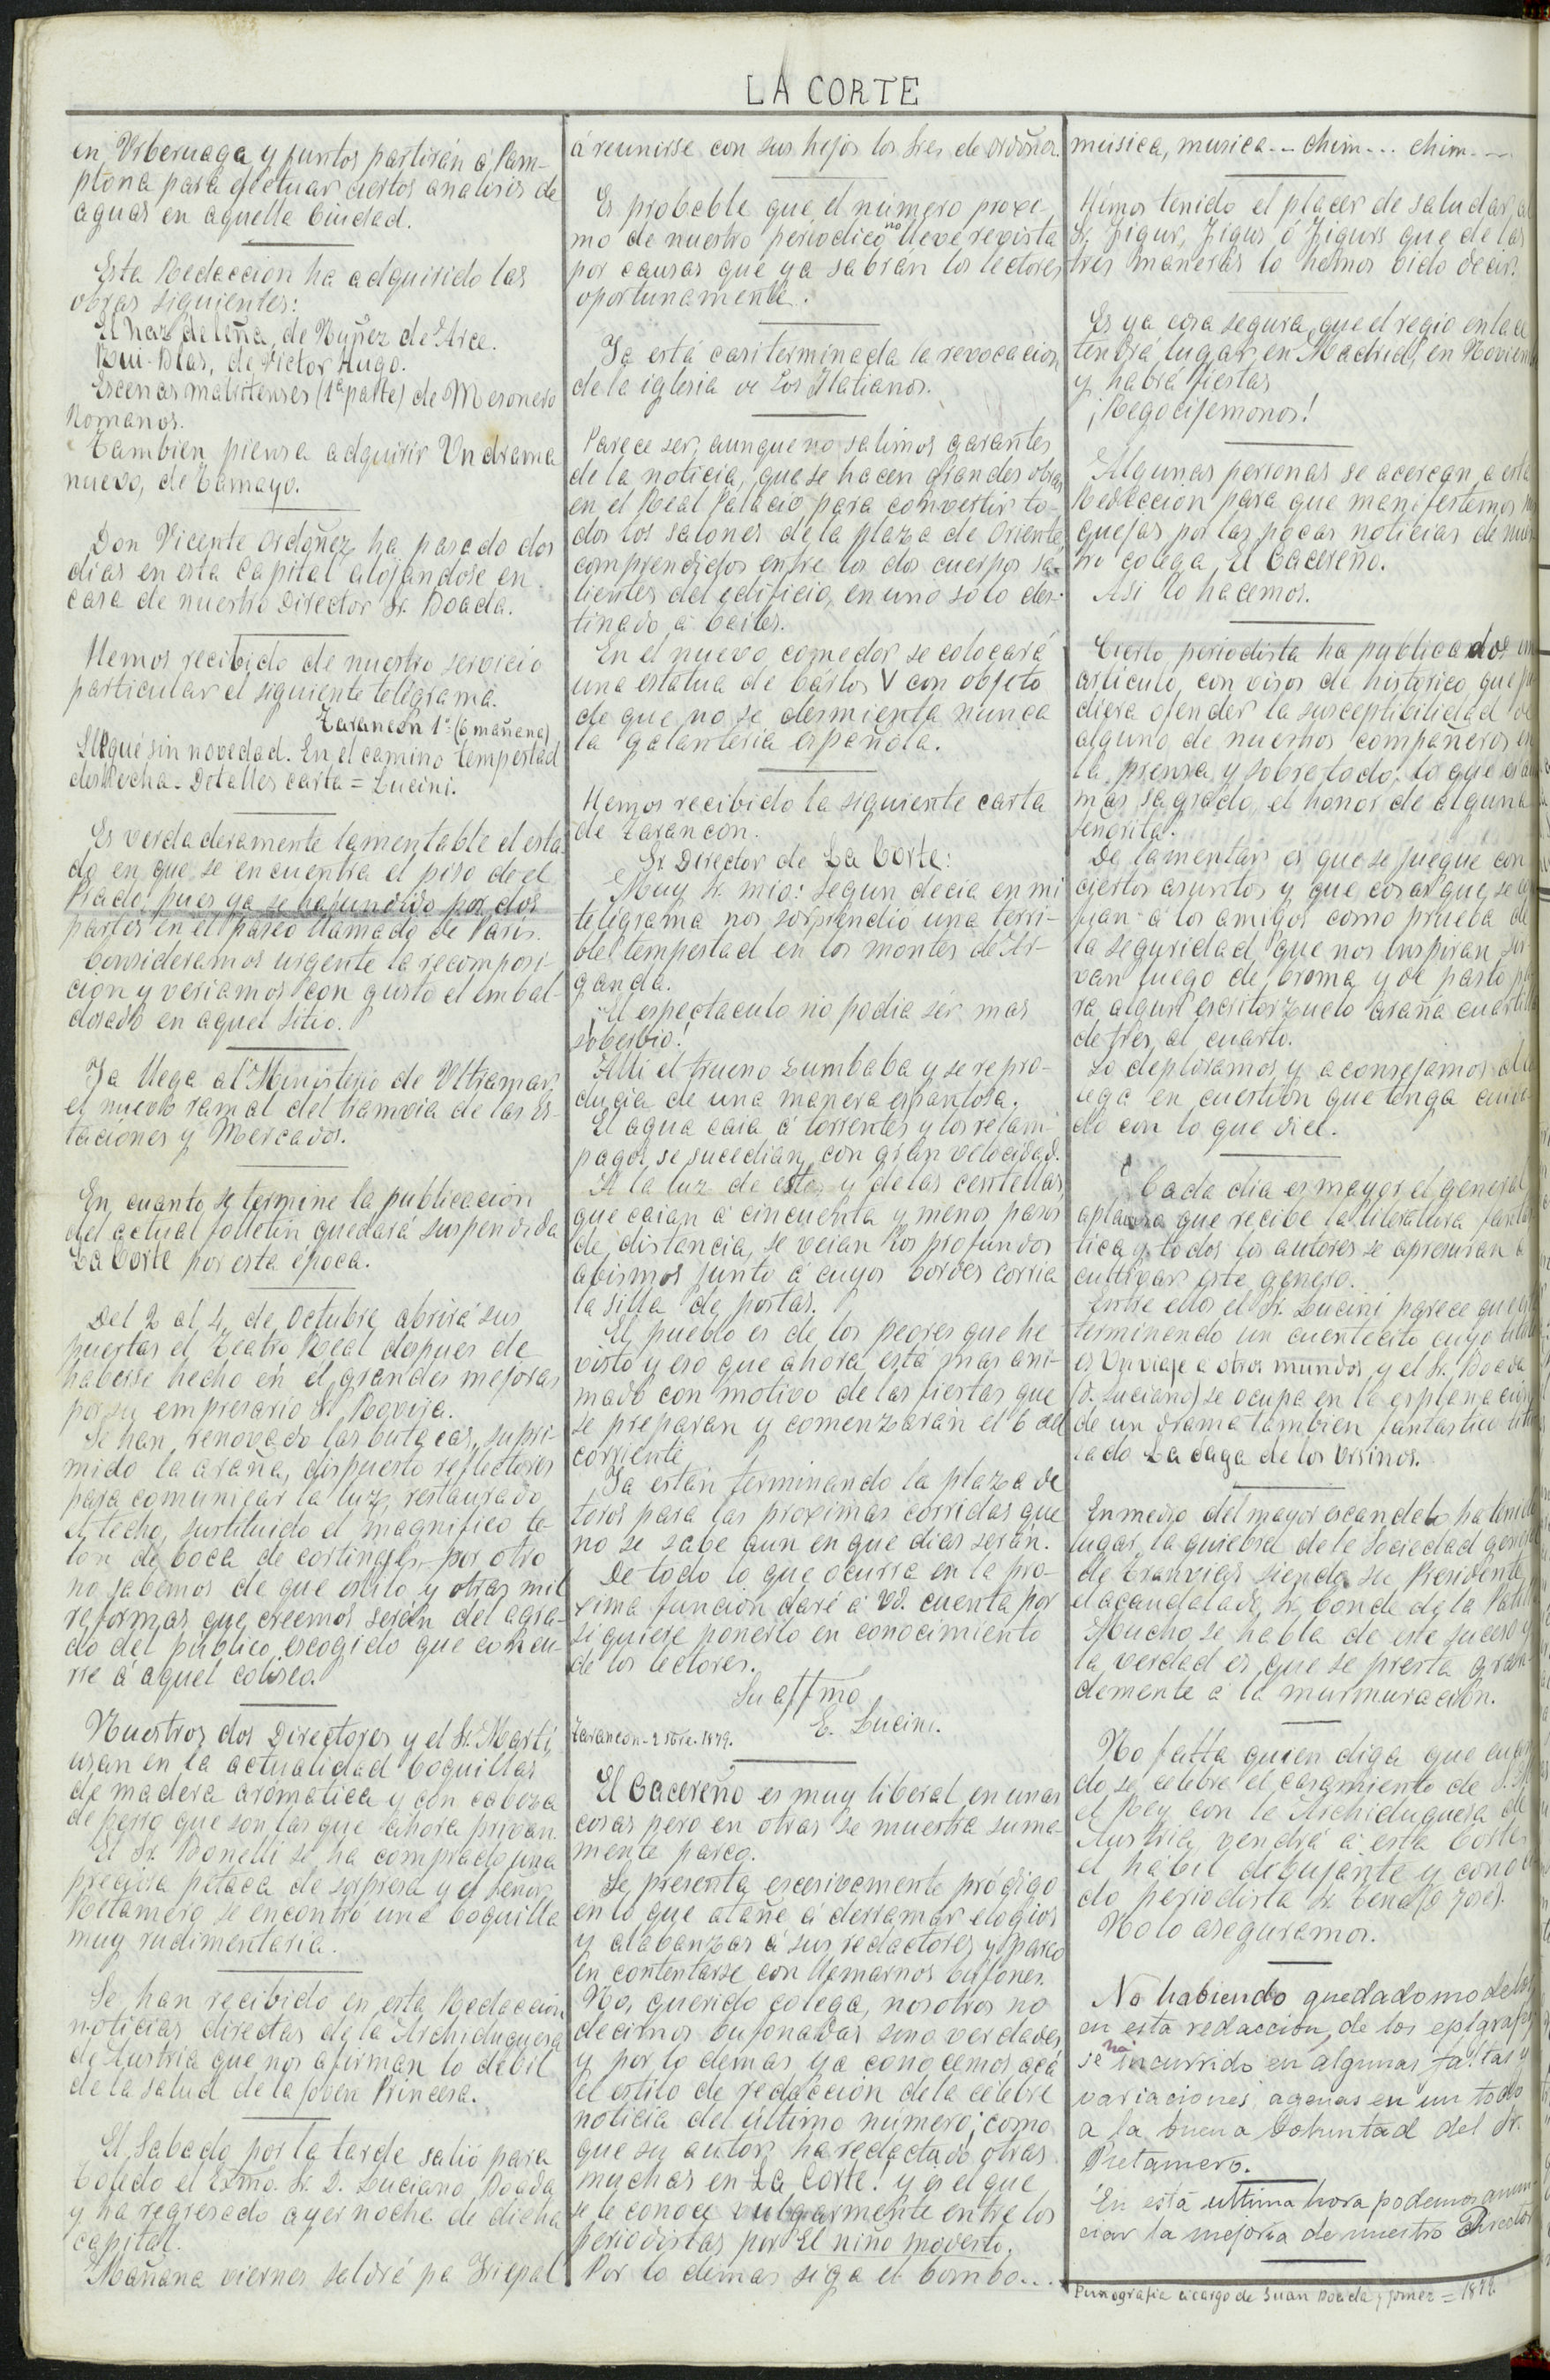 LA CORTE
en Urberuaga y juntos partirán á Pam-
plona para efectuar ciertos analisis de
aguas en aquella Ciudad.
Esta Redaccion ha adquirido las
obras siguientes:
El haz de leña, de Nuñez de Arce.
Rui-Blas, de Victor Hugo.
Escenas matritenses (1ª parte) de Mesonero
Romanos.
Tambien piensa adquirir Un drama
nuevo, de Tamayo.
Don Vicente Ordoñez ha pasado dos
dias en esta Capital alojandose en
casa de nuestro Director Sr. Boada.
Hemos recibido de nuestro servicio
particular el siguiente telegrama.
Tarancon 1º (6 mañana)
Llegué sin novedad. En el camino tempestad
deshecha. Detalles carta = Lucini.
Es verdaderamente lamentable el esta-
do en que se encuentra el piso de el
Prado, pues ya se ha fundido por dos
partes en el paseo llamado de Paris.
Consideramos urgente la recomposi-
cion y veriamos con gusto el embal-
dosado en aquel sitio.
Ya llega al Ministerio de Ultramar,
el nuevo ramal del tramvia de las Es-
taciones y Mercados.
En cuanto se termine la publicacion
del actual folletin quedará suspendida
La Corte por esta época.
Del 2 al 4 de Octubre abrirá sus
puertas el Teatro Real despues de
haberse hecho en él grandes mejoras
por su empresario Sr. Rovira.
Se han renovado las butacas, supri-
mido la araña, dispuesto reflectores
para comunicar la luz, restaurado
el techo, sustituido el magnifico te-
lon de boca de cortinajes por otro
no sabemos de que estilo y otras mil
reformas que creemos serán del agra-
do del publico escogido que concu-
rre á aquel coliseo.
Nuestros dos Directores y el Sr. Marti
usan en la actualidad boquillas
de madera aromatica y con cabeza
de perro que son las que ahora privan.
El Sr. Bonelli se ha comprado una
preciosa petaca de sorpresa y el señor
Retamero se encontró una boquilla
muy rudimentaria.
Se han recibido en esta Redaccion
noticias directas de la Archiduquesa
de Austria que nos afirman lo debil
de la salud de la joven Princesa.
El Sabado por la tarde salió para
Toledo el Exmo. Sr. D. Luciano Boada
y ha regresado ayer noche de dicha
capital.
Mañana viernes saldrá pa Iriepal
á reunirse con sus hijos los Sres de Ordoñez.
Es probable que el número proxi-
mo de nuestro periodico no lleve revista
por causas que ya sabran los lectores
oportunamente.
Ya está casi terminada la revocacion
de la iglesia de Los Italianos.
Parece ser, aunque no salimos garantes
de la noticia, que se hacen grandes obras
en el Real Palacio para convertir to-
dos los salones de la plaza de Oriente,
comprendidos entre los dos cuerpos sa-
lientes del edificio, en uno solo des-
tinado á bailes.
En el nuevo comedor se colocará
una estatua de Carlos V con objeto
de que no se desmienta nunca
la galanteria española.
Hemos recibido la siguiente carta
de Tarancon.
Sr. Director de La Corte:
Muy Sr. mio: Segun decia en mi
telegrama nos sorprendió una terri-
ble tempestad en los montes de Ar-
ganda.
¡El espectaculo no podia ser mas
soberbio!
Alli el trueno zumbaba y se repro-
ducia de una manera espantosa.
El agua caia á torrentes y los relam-
pagos se sucedian con gran velocidad.
A la luz de estos y de las centellas
que caian á cincuenta y menos pasos
de distancia, se veian los profundos
abismos junto á cuyos bordes corria
la silla de postas.
El pueblo es de los peores que he
visto y eso que ahora está mas ani-
mado con motivo de las fiestas que
se preparan y comenzarán el 6 del
corriente.
Ya están terminando la plaza de
toros para las proximas corridas que
no se sabe aun en que dias serán.
De todo lo que ocurra en la pro-
xima funcion daré á Vd. cuenta por
si quiere ponerlo en conocimiento
de los lectores.
Su affmo
E. Lucini.
Tarancon-2 Sbre. 1879.
El Cacereño es muy liberal en unas
cosas pero en otras se muestra suma-
mente parco.
Se presenta escesivamente pródigo
en lo que atañe á derramar elogios
y alabanzas á sus redactores y parco
en contentarse con llamarnos bufones.
No, querido colega, nosotros no
decimos bufonadas sino verdades
y por lo demas ya conocemos acá
el estilo de redaccion de la célebre
noticia del último número; como
que su autor ha redactado otras
muchas en La Corte! y es el que
se le conoce vulgarmente entre los
periodistas por El niño modesto.
Por lo demas siga el bombo...
música, musica... chim... chim...
Hemos tenido el placer de saludar al
Sr. Jigur, Jigus, ó Jigurs que de las
tres maneras lo hemos oido decir.
Es ya cosa segura que el regio enlace
tendrá lugar en Madrid, en Noviem
y habrá fiestas
¡Regocijemonos!
Algunas personas se acercan a esta
Redaccion para que manifestemos
quejas por las pocas noticias de nues-
tro colega, El Cacereño.
Asi lo hacemos.
Cierto periodista ha publicado un
articulo, con visos de historico que pu
diera ofender la susceptibilidad de
alguno de nuestros compañeros en
la prensa y sobre todo lo que es
mas sagrado, el honor de alguna
señorita.
De lamentar es que se juegue con
ciertos asuntos y que cosas que se
fian á los amigos como prueba de
la seguridad que nos inspiran, sir-
van luego de broma y de pasto pa
ra algun escritorzuelo araña cuartillas
de tres al cuarto.
Lo deploramos y aconsejamos al co
lega en cuestion que tenga cuida-
do con lo que dice.
Cada dia es mayor el general
aplauso que recibe la literatura fantas
tica y todos los autores se apresuran a
cultivar este genero.
Entre ellos el Sr. Lucini parece que está
terminando un cuentecito cuyo titulo
es Un viaje a otros mundos, y el Sr. Boada
(D. Luciano) se ocupa en la esplanacion
de un drama tambien fantastico titu
lado La daga de los Ursinos.
En medio del mayor escandalo ha tenido
lugar, la quiebra de la Sociedad general
de tranvias siendo su Presidente
el acaudalado Sr. Conde de la Patilla
Mucho se habla de este suceso y
la verdad es que se presta gran-
demente á la murmuracion.
No falta quien diga que cuan
do se celebre el casamiento de S. M.
el Rey con la Archiduquesa de
Austria, vendrá á esta Corte
el hábil dibujante y conoci
do periodista Sr.
No lo aseguramos.
No habiendo quedado modelos
en esta redaccion, de los epigrafes
se ha incurrido en algunas faltas y
variaciones agenas en un todo
a la buena voluntad del Sr.
Retamero.
En esta ultima hora podemos anun
ciar la mejoria de nuestro Director
Plumografia á cargo de Juan Boada y Gomez = 1879.